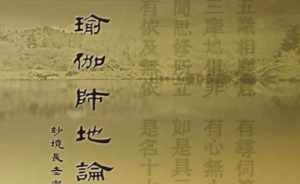 瑜伽師地論
妙境長老
五識相應
有尋伺等
三摩地俱非
有心無
聞思修所立
如是具三
有依及無依
是名十